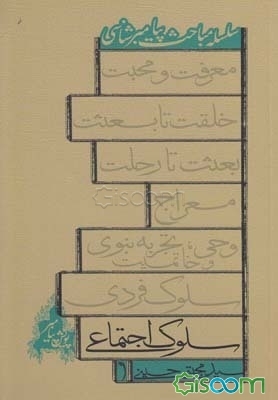 سلسله مباحث پیامبرشناسی
معرفت و محبت
خلقت تا بعثت
بعثت تا رحلت
معراج
وحی، تجربه نبوی
و خاتمیت
سلوک فردی
سلوک اجتماعی
سید مجتبی حسینی
Gisoom
.com